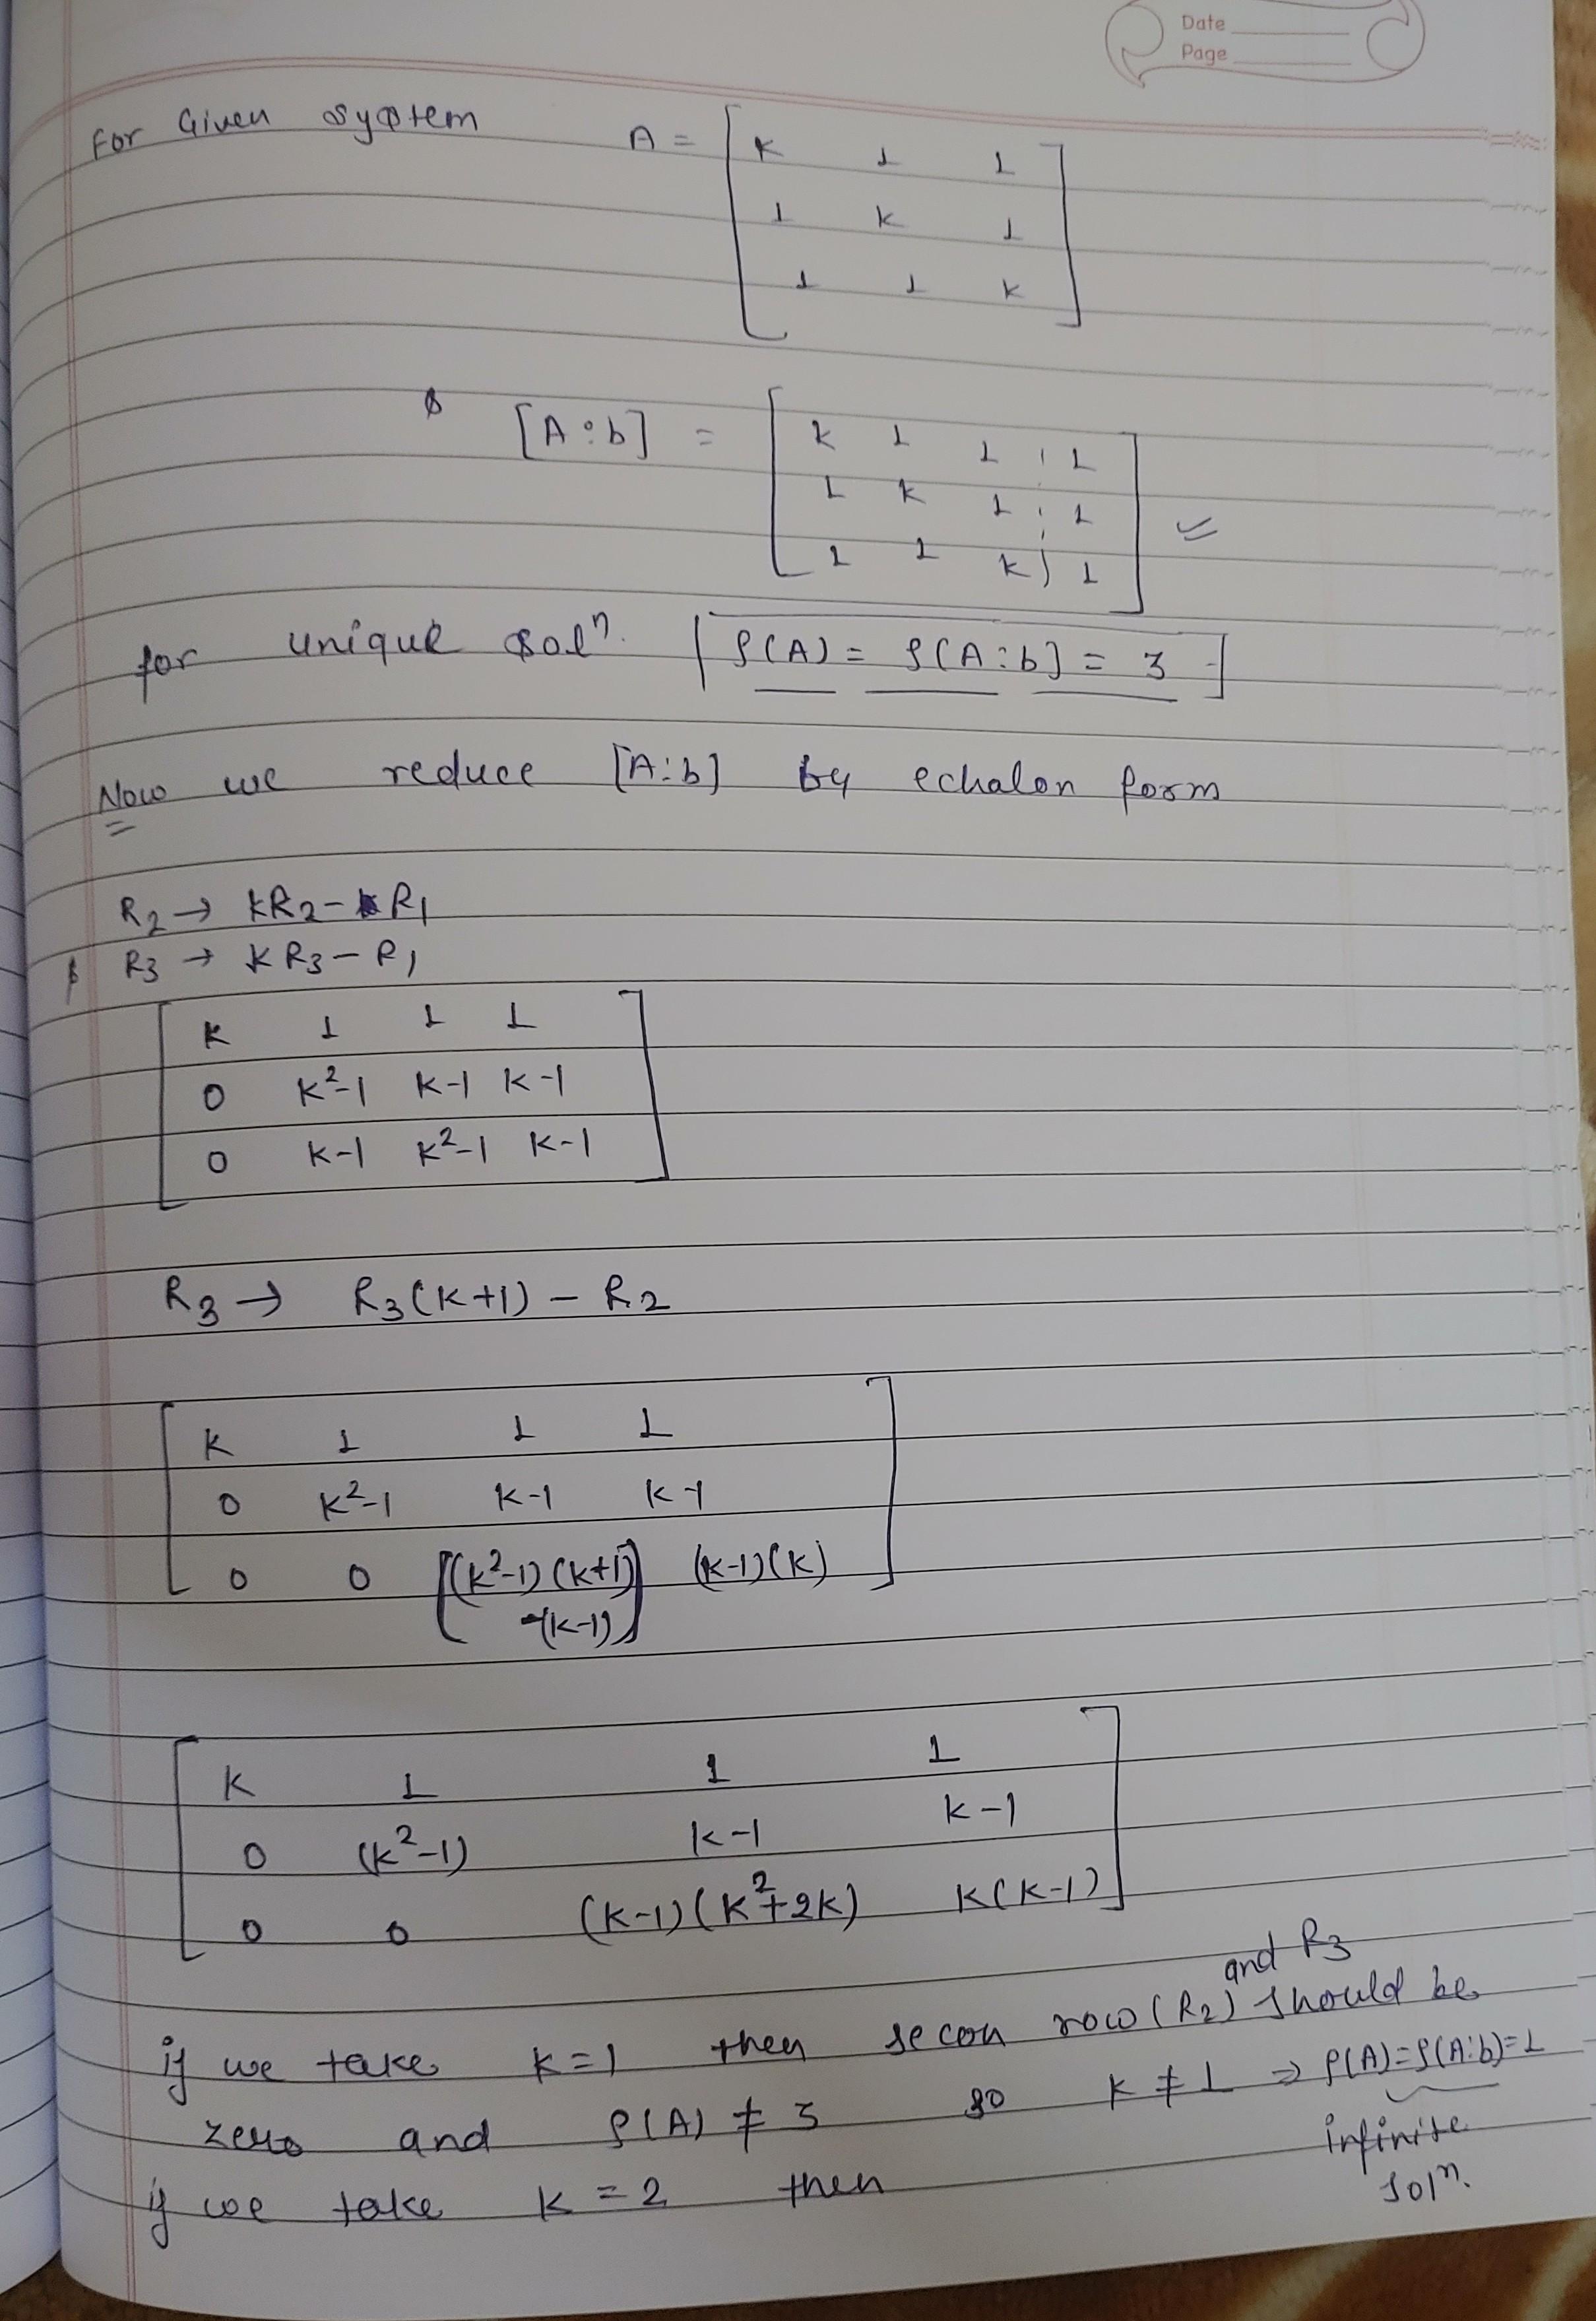 Date
Page
For Given system A = [ k 1 1
1 k 1
1 1 k ]
[A : b] = [ k 1 1 ¦ 1
1 k 1 ¦ 1
1 1 k ¦ 1 ]
for unique solⁿ. ρ(A) = ρ[A : b] = 3
Now we reduce [A : b] by echalon form
R₂ → kR₂ - R₁
R₃ → kR₃ - R₁
[ k 1 1 1
0 k²-1 k-1 k-1
0 k-1 k²-1 k-1 ]
R₃ → R₃(k+1) - R₂
[ k 1 1 1
0 k²-1 k-1 k-1
0 0 [(k²-1)(k+1) (k-1)(k) ]
-(k-1)]
[ k 1 1 1
0 (k²-1) k-1 k-1
0 0 (k-1)(k²+2k) k(k-1) ]
and R₃
if we take k=1 then secon row (R₂) should be
zero and ρ(A) ≠ 3 so k ≠ 1 ⇒ ρ(A)=ρ(A:b)=1
infinite
solⁿ.
if we take k = 2 then